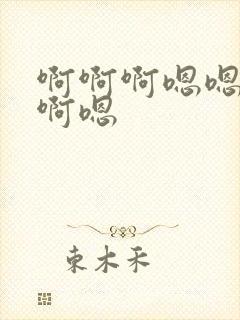 啊啊啊嗯嗯
啊嗯
束木禾